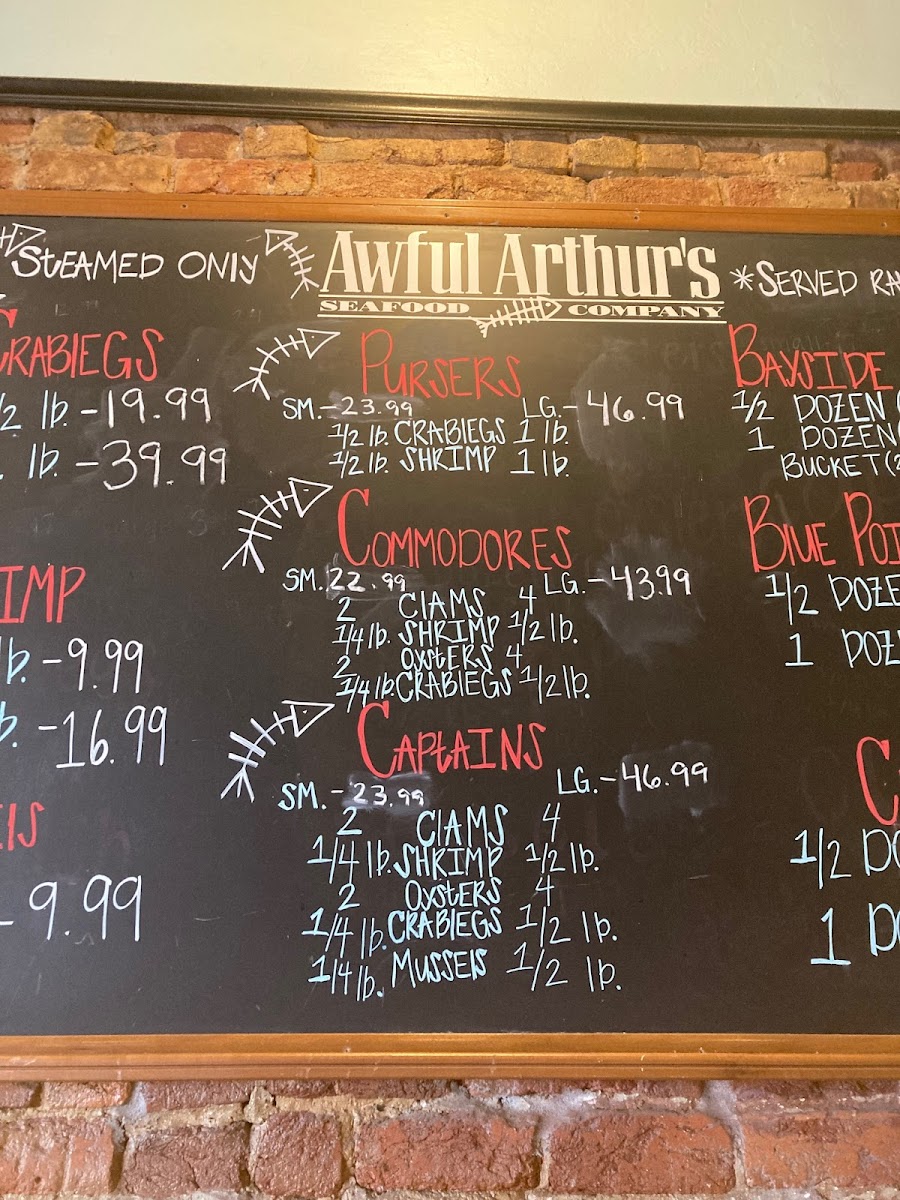 STEAMED ONLY
CRABLEGS
1/2 lb. - 19.99
lb. - 39.99
- 9.99
- 16.99
- 9.99
Awful Arthur's
SEAFOOD COMPANY
PURSERS
SM. - 23.99 LG. - 46.99
1/2 lb. CRABLEGS 1 lb.
1/2 lb. SHRIMP 1 lb.
COMMODORES
SM. 22.99 LG. - 43.99
2 CLAMS 4
1/4 lb. SHRIMP 1/2 lb.
2 OYSTERS 4
1/4 lb. CRABLEGS 1/2 lb.
CAPTAINS
SM. - 23.99 LG. - 46.99
2 CLAMS 4
1/4 lb. SHRIMP 1/2 lb.
2 OYSTERS 4
1/4 lb. CRABLEGS 1/2 lb.
1/4 lb. MUSSELS 1/2 lb.
*SERVED
BAYSIDE
1/2 DOZEN
1 DOZEN
BUCKET
BLUE
1/2
1
1/2
1